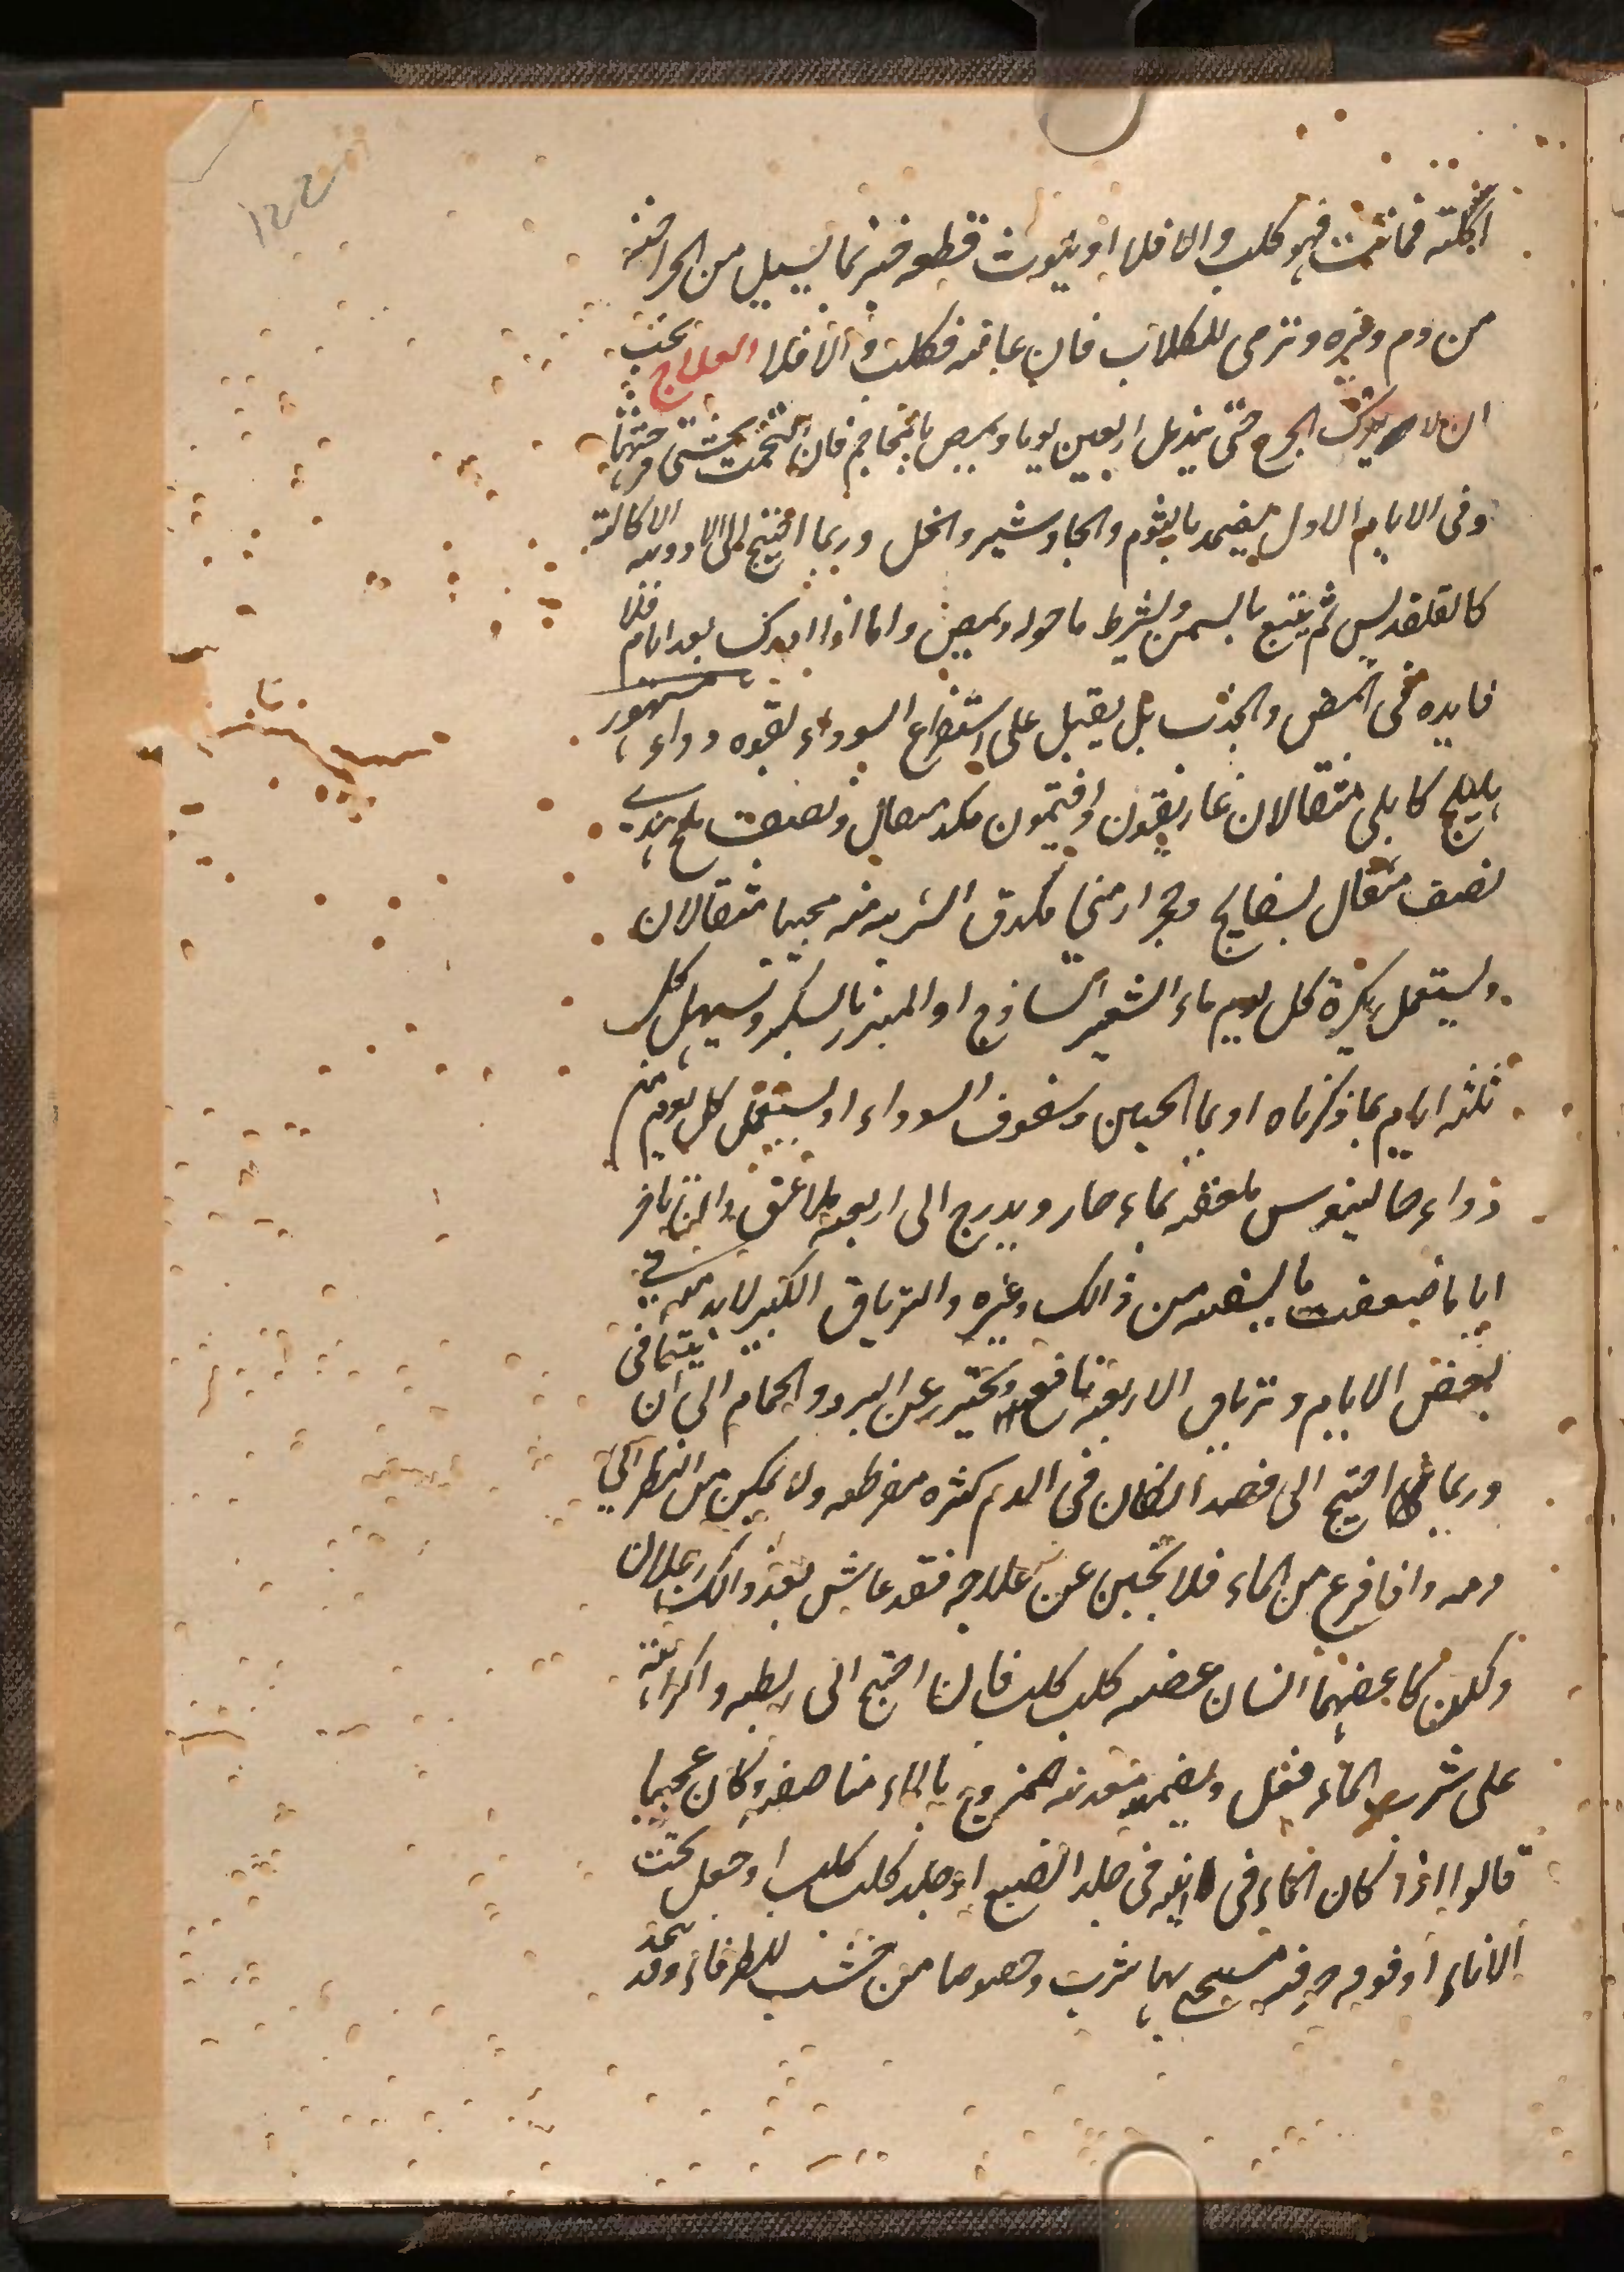 اكلته فماتت فهو كلب والا فلا او يلوث قطعه خبز بما يسيل من الجراحته
من دم وغيره وترمى للكلاب فان عافته فكلب والا فلا العلاج يجب
ان لا يترك الجرح حتى يندمل اربعين يوما ويمص بالمحاجم فان التحمت نحتى فتحتها
وفى الايام الاول يضمد بالثوم والجاوشير والخل وربما احتيج الى الادويه الاكالة
كالقلقديس ثم يتبع بالسمن ويشرط ما حوله ويمص واما اذا ادرك بعد ايام فلا
فايده فى المص والجذب بل يقبل على استفراغ السوداء بقوه دواء مشهور
هليلج كابلى مثقالان غاريقون وافتيمون مكد مثقال ونصف ملح هندي
نصف مثقال بسفايج وحجر ارمنى مكدق الشربه منه محببا مثقالان
ويستعمل بكرة كل يوم ماء الشعير الساذج او المبزر بالسكر وتسهل كل
ثلثه ايام بما ذكرناه او بماء الجبن وسفوف السوداء او يستعمل كل يوم من
دواء جالينوس ملعقه بماء حار ويدرج الى اربعه ملاعق وان تاخر
اياما ضعف ما يسقه من ذالك وغيره والترياق الكبير لا بد منه في
بعض الايام وترياق الاربعه نافع ويحترز عن البرد والحمام الى ان يتعافى
وربما احتيج الى فصد ان كان فى الدم كثره مفرطه ولا يمكن من النظر الى
دمه واذا فزع من الماء فلا تجبن عن علاجه فقد عاش بعد ذالك رجلان
ولكن كا عضهما انسان عضه كلب كلب فاذا احتيج الى ربطه واكراهه
على شرب الماء فعل ويضمد معدته ممزوج بالماء مناصفه وكان عجيبا
قالوا اذا كان الماء فى انيه فى جلد الضبع او جلد كلب كلب او جعل تحت
الاناء او فوقه خرقه مسيح بها شرب وخصوصا من خشب الطرفاء وقد